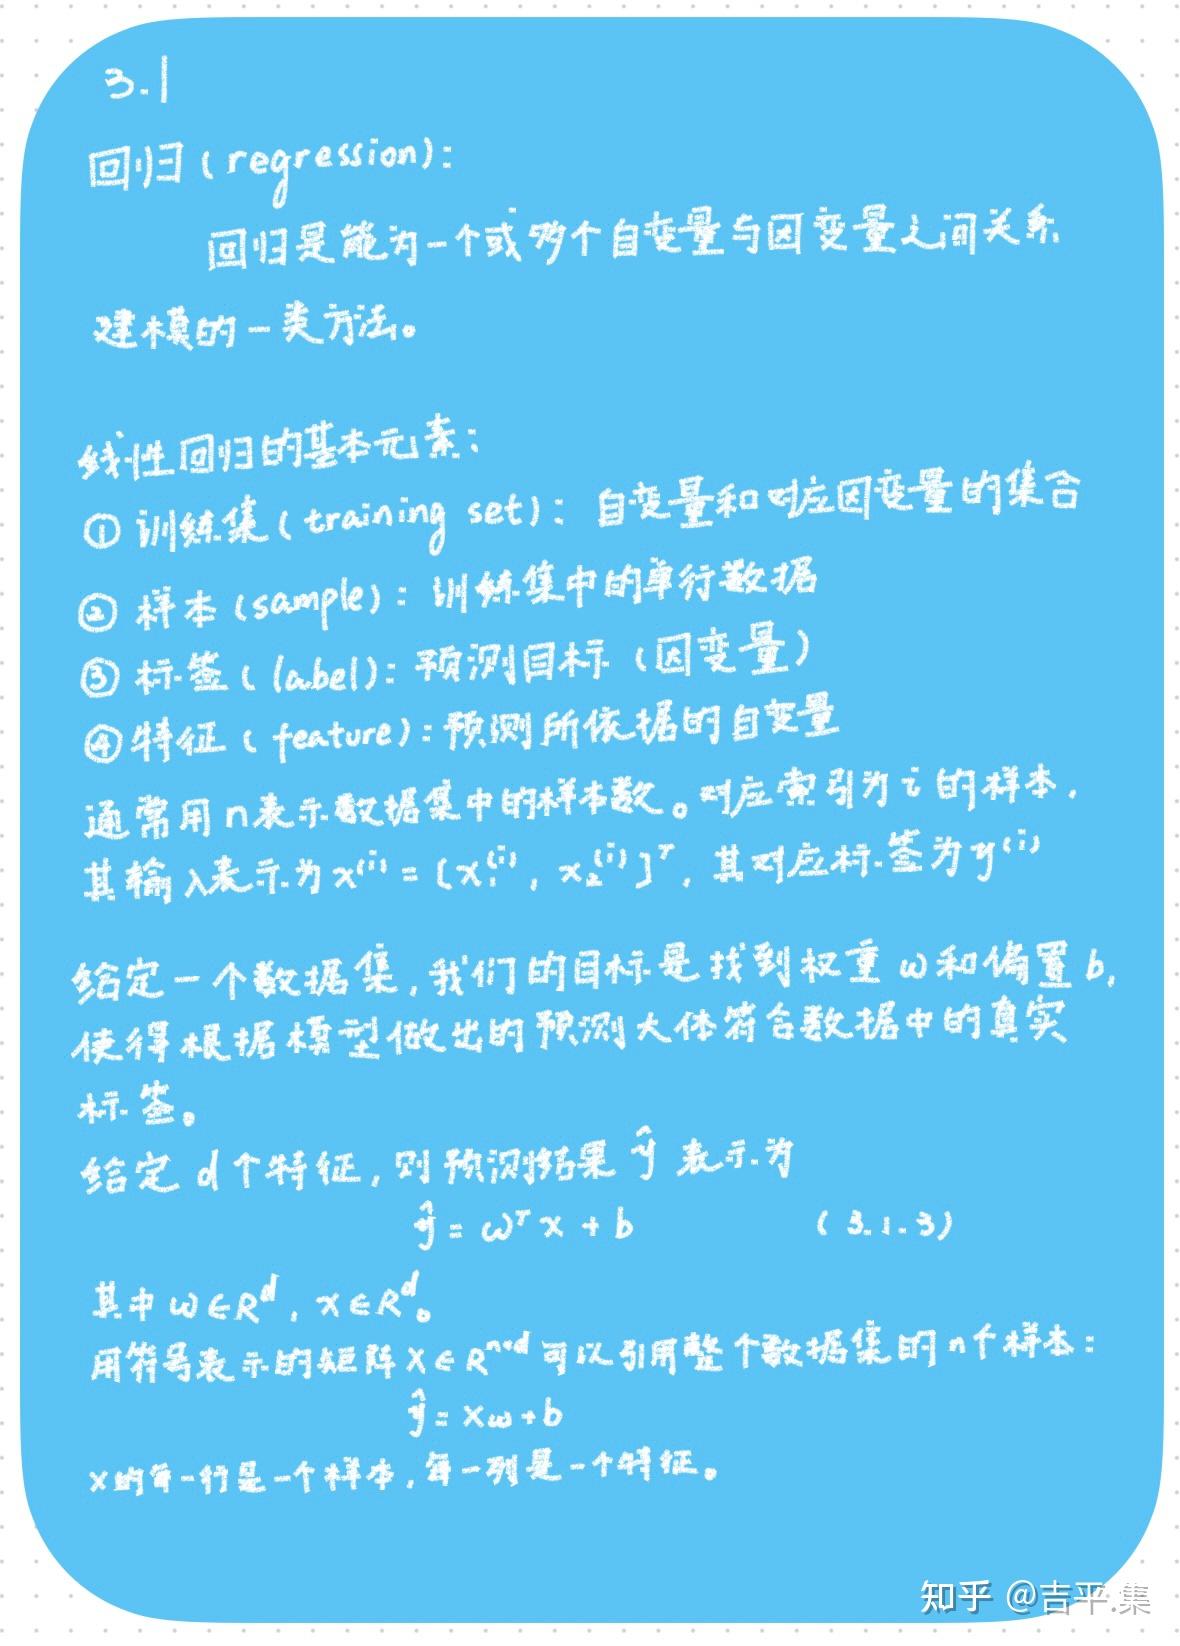 3.1
回归(regression):
回归是能为一个或多个自变量与因变量之间关系
建模的一类方法。
线性回归的基本元素:
① 训练集(training set): 自变量和对应因变量的集合
② 样本(sample): 训练集中的单行数据
③ 标签(label): 预测目标(因变量)
④ 特征(feature): 预测所依据的自变量
通常用n表示数据集中的样本数。对应索引为i的样本,
其输入表示为x⁽ⁱ⁾=[x₁⁽ⁱ⁾, x₂⁽ⁱ⁾]ᵀ, 其对应标签为y⁽ⁱ⁾
给定一个数据集,我们的目标是找到权重ω和偏置b,
使得根据模型做出的预测大体符合数据中的真实
标签。
给定d个特征,则预测结果ŷ表示为
ŷ=ωᵀx+b (3.1.3)
其中ω∈Rᵈ, x∈Rᵈ。
用符号表示的矩阵X∈Rⁿ*ᵈ可以引用整个数据集的n个样本:
ŷ=Xω+b
X的每一行是一个样本,每一列是一个特征。
知乎 @吉平.集